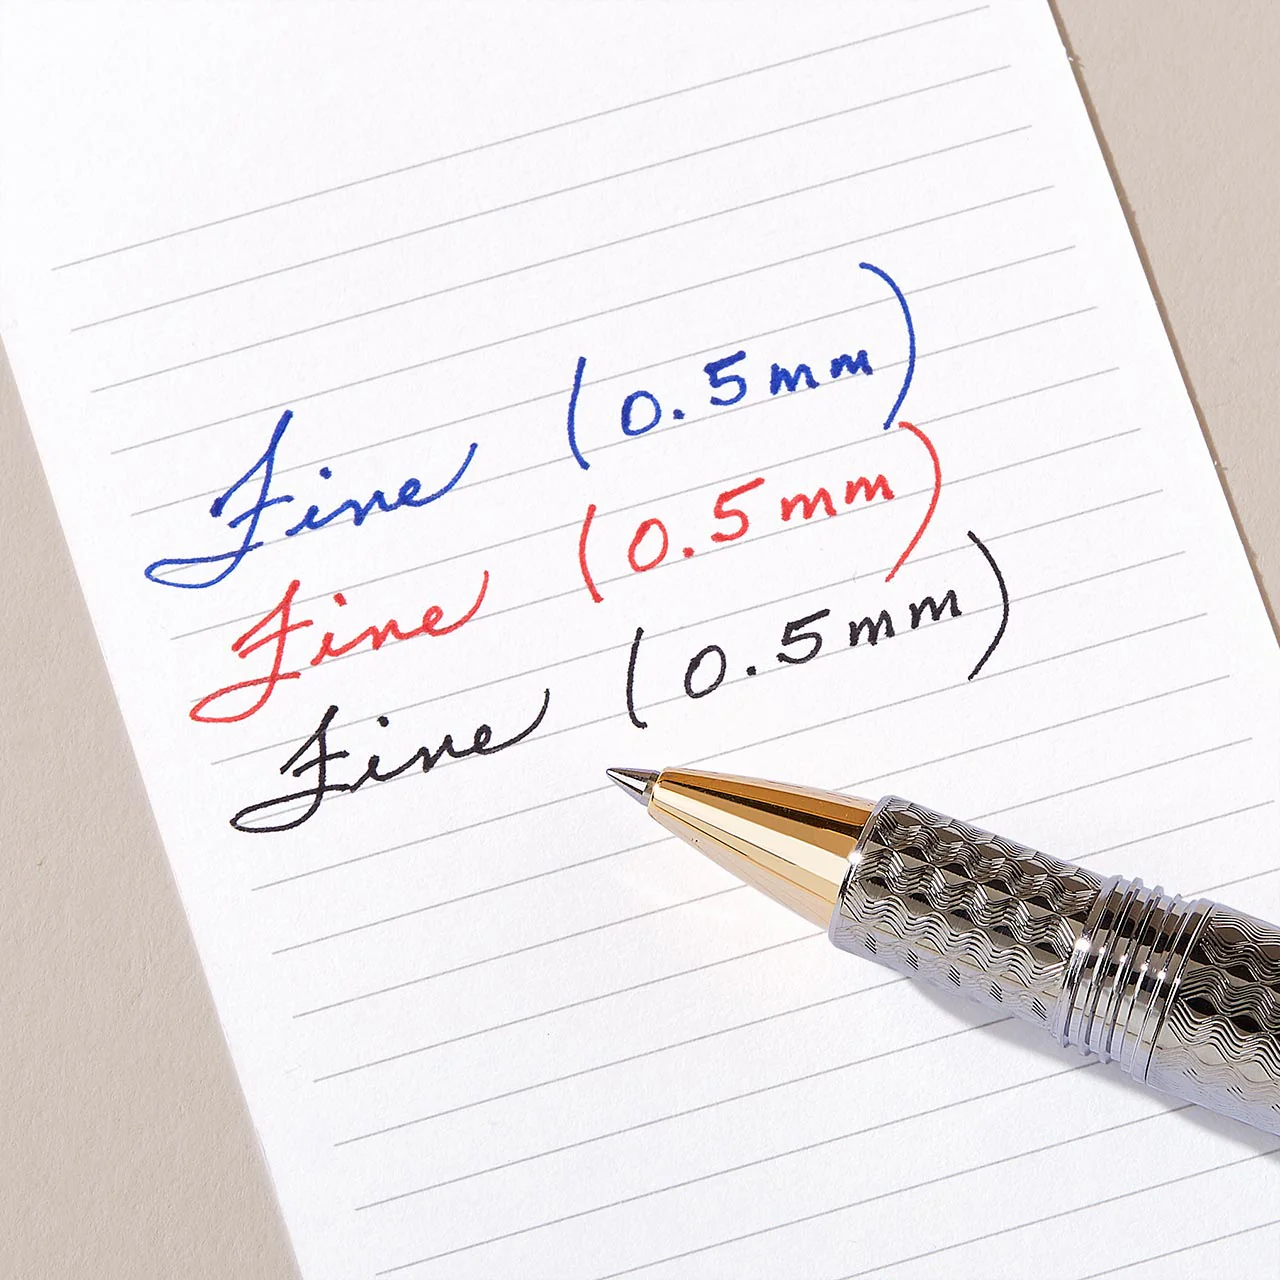 Fine (0.5mm)
Fine (0.5mm)
Fine (0.5mm)